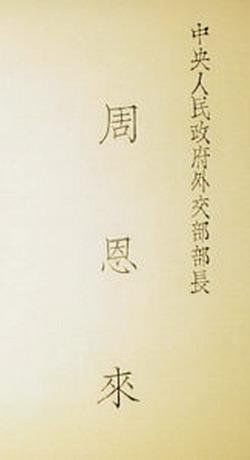 中央人民政府外交部部長
周恩來